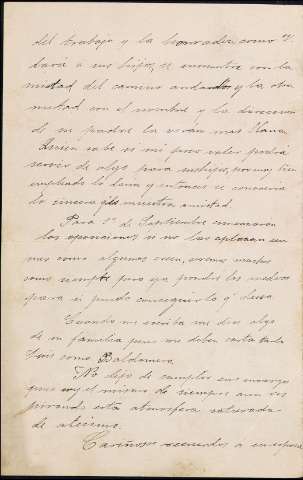 del trabajo y la honradez como V.
dará á sus hijos, se encuentra con la
mitad del camino andado y la otra
mitad con el nombre y la direccion
de su padre la verán mas llana
Quien sabe si mi pobre valer podrá
servir de algo para sus hijos, por muy bien
empleado lo daria y entonces se conoceria
lo sincera de nuestra amistad.
Para 1º de Septiembre comenzaran
las oposiciones si no las aplazan
mas como algunos creen, 
como siempre pero ya pondré los medios
para si puedo conseguirlo q. 
Cuando me escriba me dice algo
de su familia pues me deben carta tanto
Luis como Baldomera
No dejo de cumplir su encargo
pues soy el mismo de siempre aun res
pirando esta atmosfera saturada
de ateismo.
Cariñosos recuerdos á su esposa